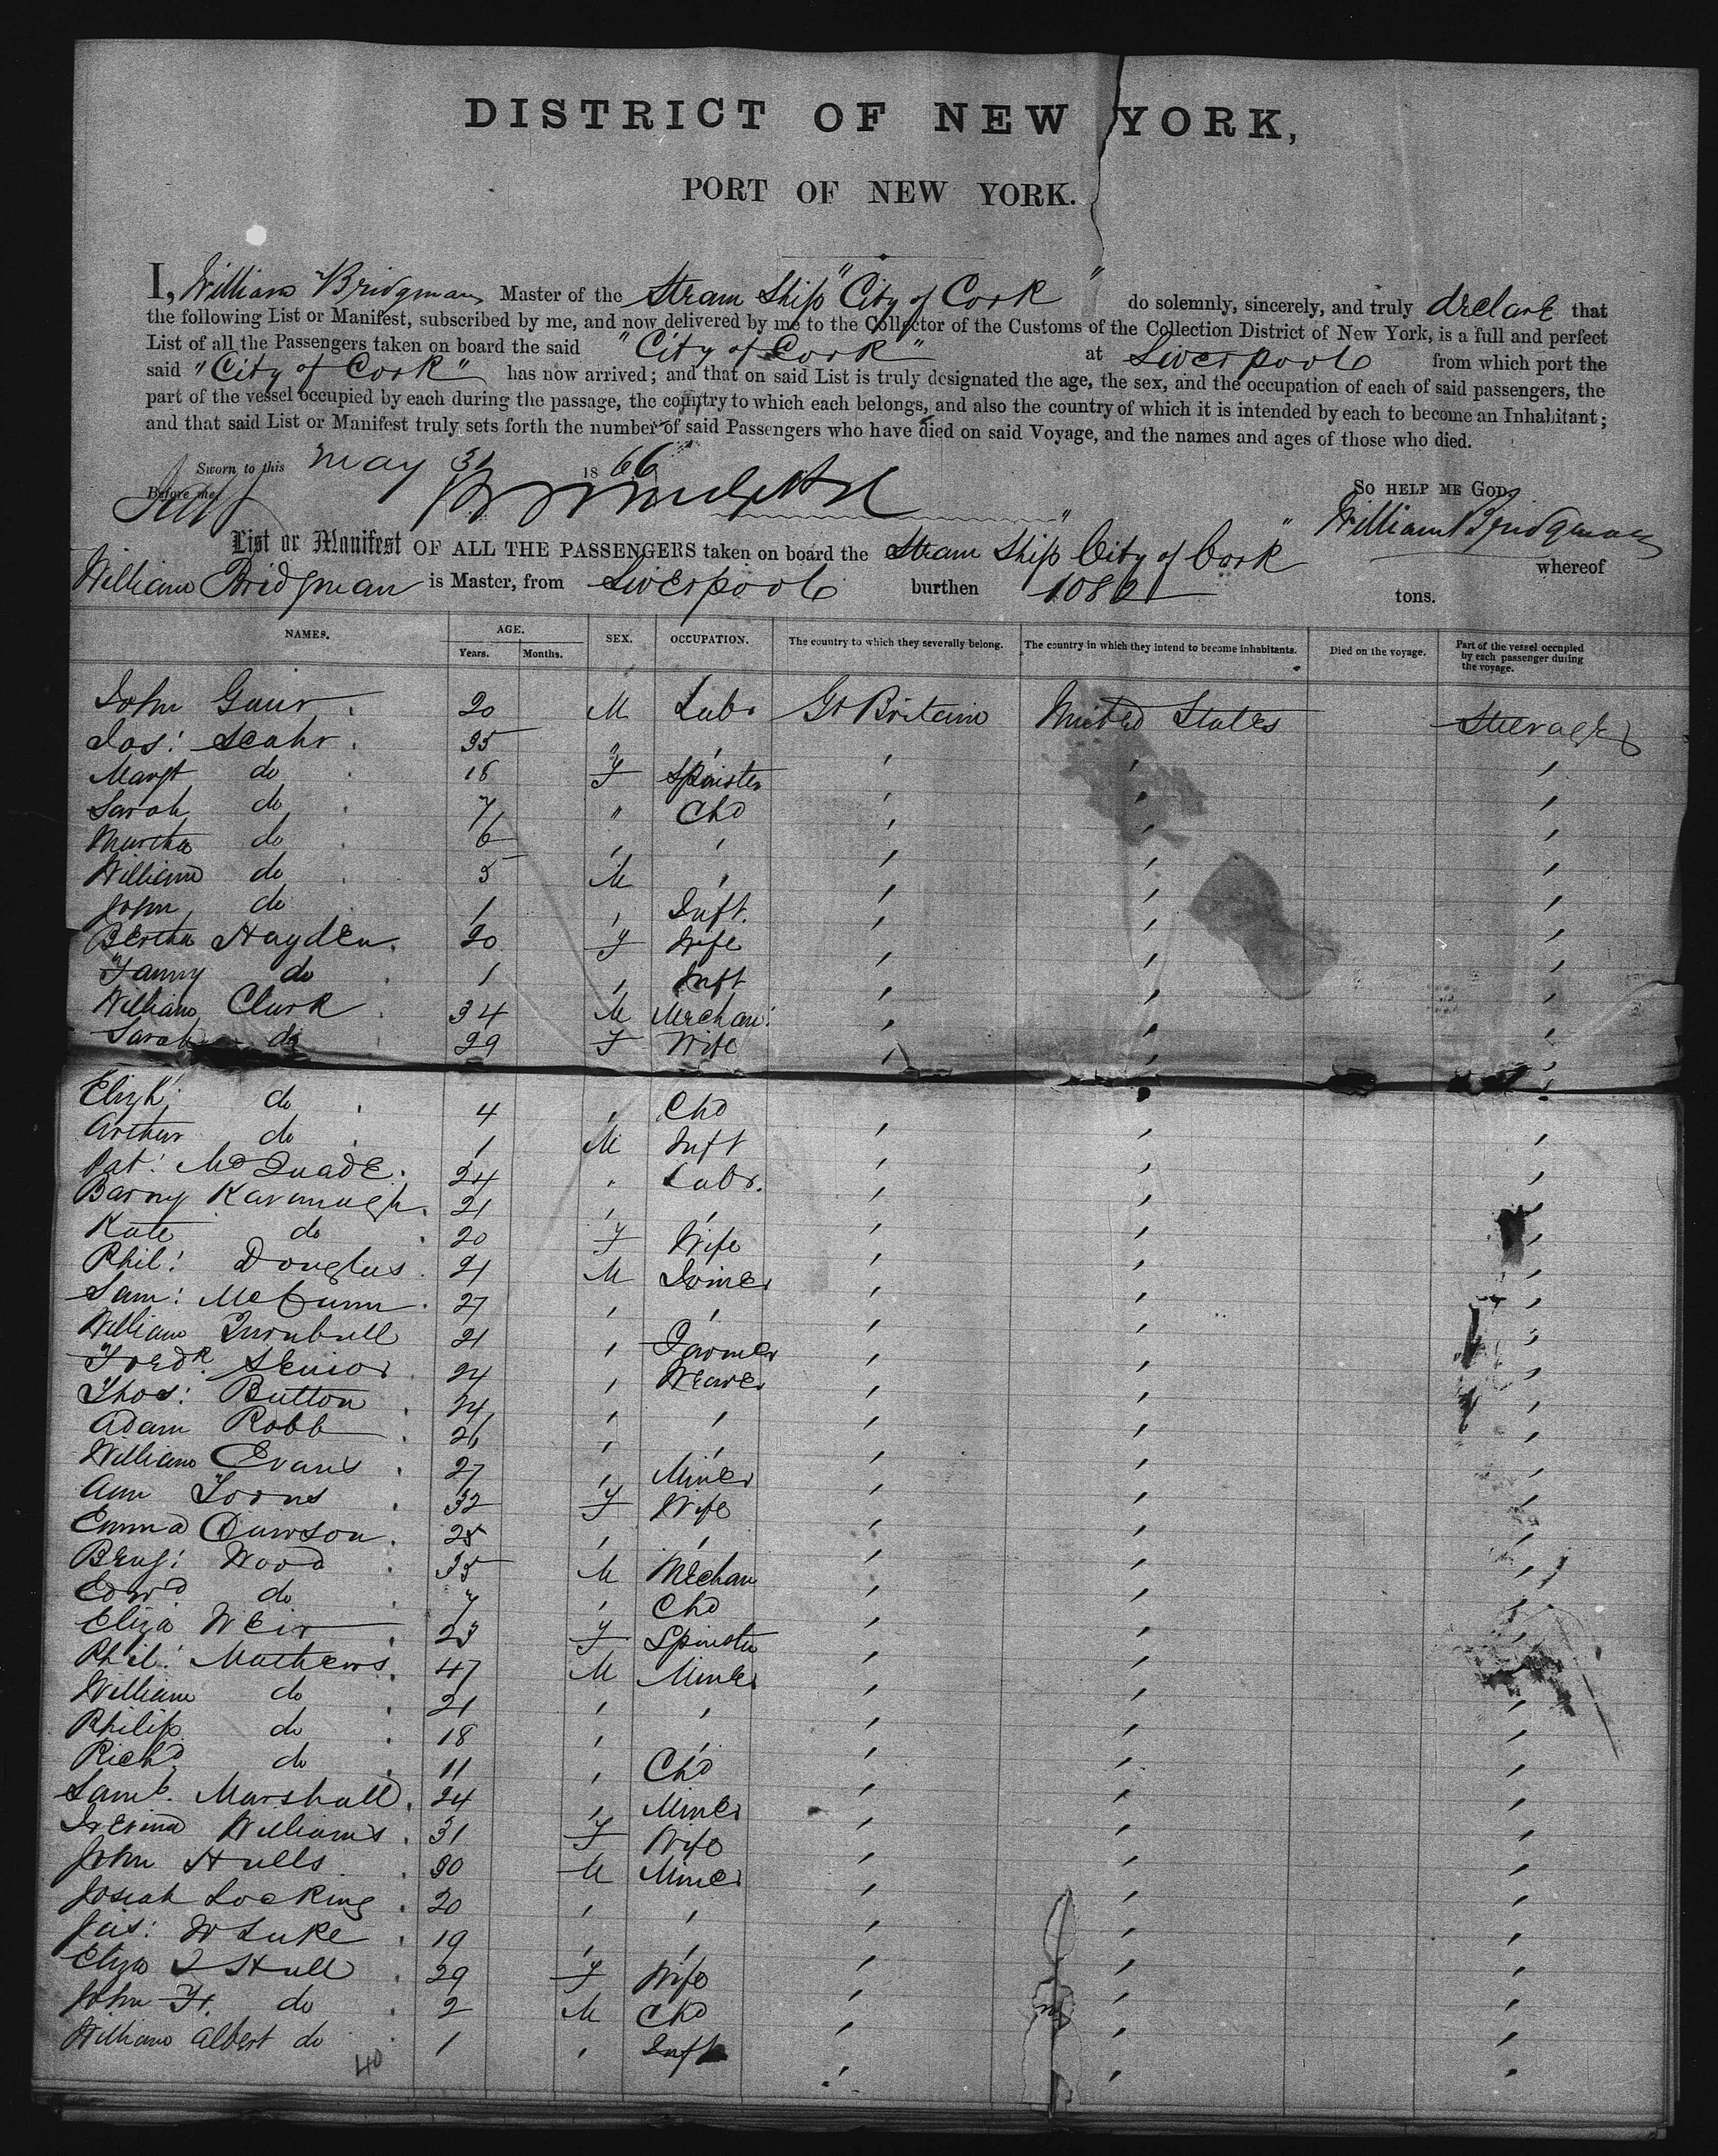 DISTRICT OF NEW YORK,
PORT OF NEW YORK.
I, William Bridgman Master of the Steam Ship "City of Cork" do solemnly, sincerely, and truly declare that
the following List or Manifest, subscribed by me, and now delivered by me to the Collector of the Customs of the Collection District of New York, is a full and perfect
List of all the Passengers taken on board the said "City of Cork" at Liverpool from which port the
said "City of Cork" has now arrived; and that on said List is truly designated the age, the sex, and the occupation of each of said passengers, the
part of the vessel occupied by each during the passage, the country to which each belongs, and also the country of which it is intended by each to become an Inhabitant;
and that said List or Manifest truly sets forth the number of said Passengers who have died on said Voyage, and the names and ages of those who died.
Sworn to this May 31 1866
Before me, SO HELP ME GOD,
William Bridgman
List or Manifest OF ALL THE PASSENGERS taken on board the Steam Ship "City of Cork" whereof
William Bridgman is Master, from Liverpool burthen 1080 tons.
NAMES. AGE. Years. Months. SEX. OCCUPATION. The country to which they severally belong. The country in which they intend to become inhabitants. Died on the voyage. Part of the vessel occupied by each passenger during the voyage.
John 20 M Labr Gt Britain United States Steerage
Jas: 35 " '
Margt do 18 F Spinster
Sarah do 7 " Chd
Martha do 6 ' '
William do 5 M '
John do 1 ' Inft.
Bertha Hayden 20 F Wife
Fanny do 1 ' Inft
William Clark 34 M Mechan:
Sarah do 29 F Wife
Elizh: do 4 ' Chd
Arthur do 1 M Inft
Pat: McQuade 24 ' Labr.
Barny Kavanagh 21 ' '
Kate do 20 F Wife
Phil: Douglas 21 M Joiner
Sam: McCunn 27 ' '
William Turnbull 21 ' Farmer
Fredk. Senior 24 ' Weaver
Thos: Button 24 ' '
Adam Robb 26 ' '
William Evans 27 ' Miner
Ann 32 F Wife
Emma Dawson 25 ' '
Benj: Wood 35 M Mechan
Edwd do 7 ' Chd
Eliza Weir 23 F Spinster
Phil: Mathews 47 M Miner
William do 21 ' '
Philip do 18 ' '
Richd do 11 ' Chd
Saml. Marshall 24 ' Miner
Williams 31 F Wife
John Hulls 30 M Miner
Josiah Locking 20 ' '
Jas: W Luke 19 ' '
Eliza J Hull 29 F Wife
John H. do 2 M Chd
William Albert do 1 ' Inft
40